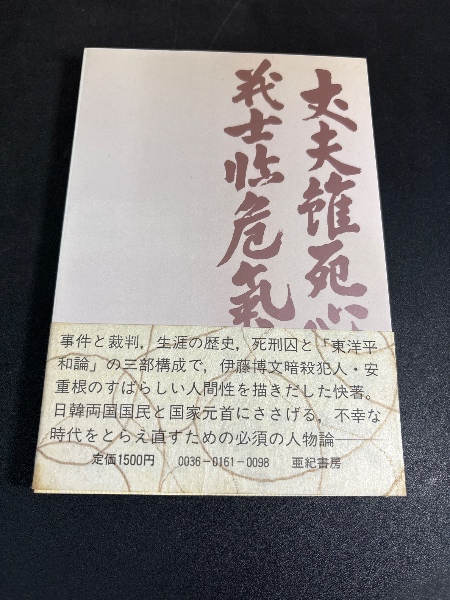 丈夫雖死心
義士临危氣
事件と裁判，生涯の歴史，死刑囚と「東洋平
和論」の三部構成で，伊藤博文暗殺犯人・安
重根のすばらしい人間性を描きだした快著。
日韓両国国民と国家元首にささげる，不幸な
時代をとらえ直すための必須の人物論――
定価1500円 0036-0161-0098 亜紀書房